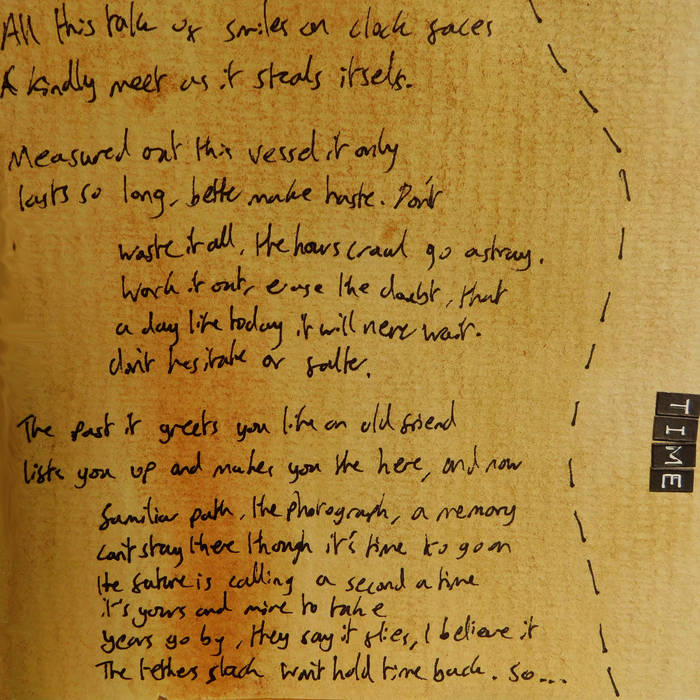 All this talk of smiles on clock faces
A kindly meet as it steals itself.
Measured out this vessel it only
lasts so long, better make haste. Don't
waste it all, the hours crawl go astray.
Work it out, erase the doubt, that
a day like today it will never wait.
don't hesitate or falter.
The past it greets you like an old friend
lifts you up and makes you the here, and now
familiar path, the photograph, a memory
can't stay there though it's time to go on
the future is calling a second a time
it's yours and mine to take
years go by, they say it flies, I believe it
The tethers slack won't hold time back. So...
TIME